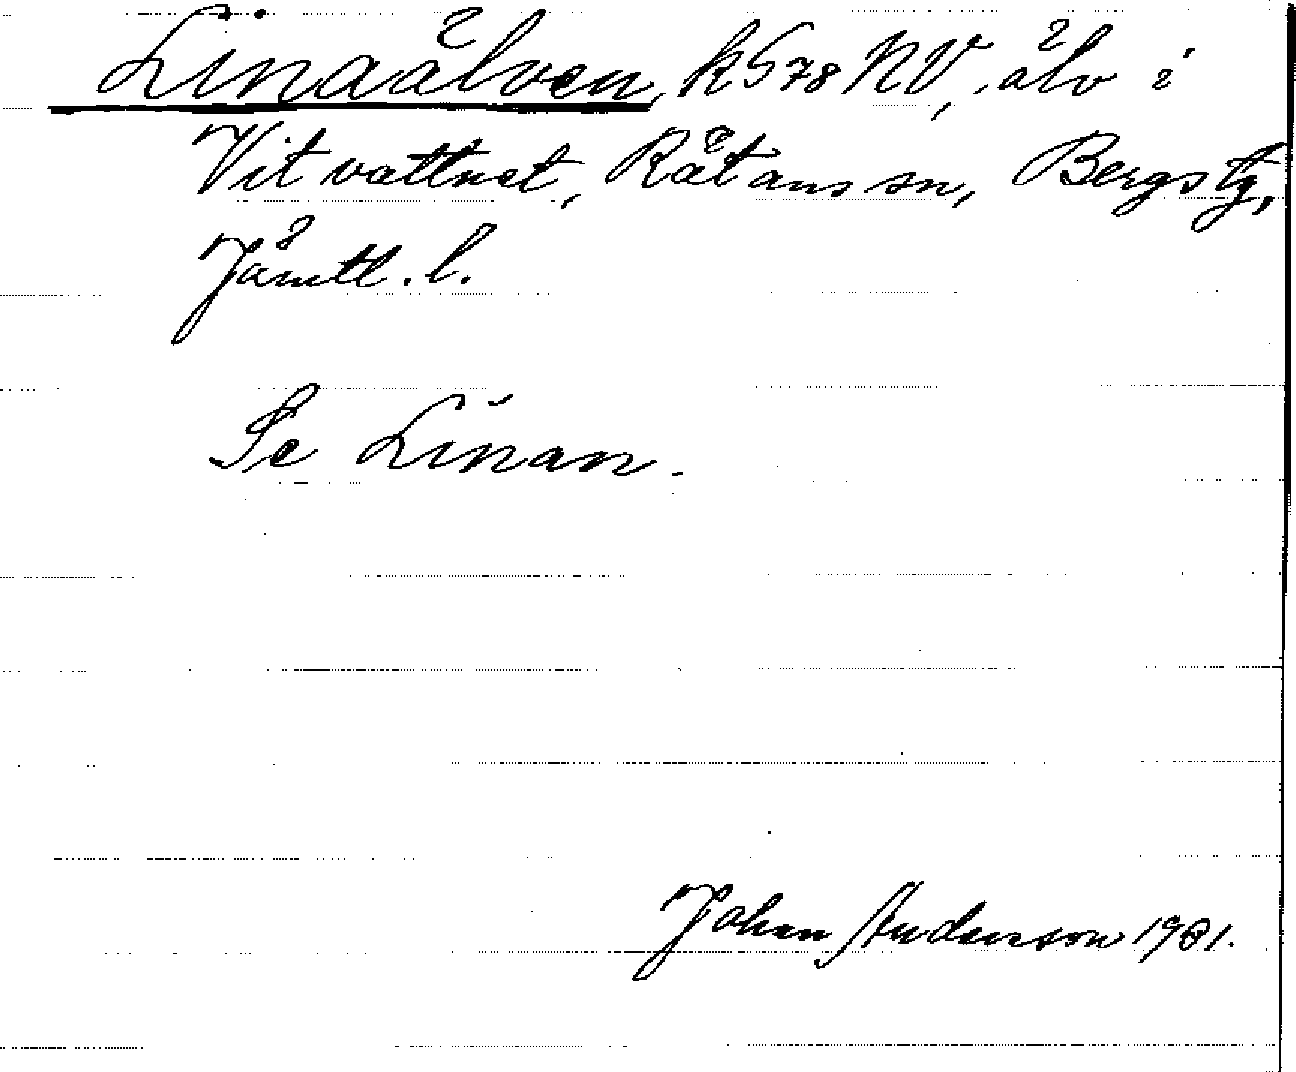 Linaälven, k 578 NV, älv i
Vitvattnet, Rätans sn, Bergs tg,
Jämtl. l.
Se Linan.
Johan Anderson 1981.